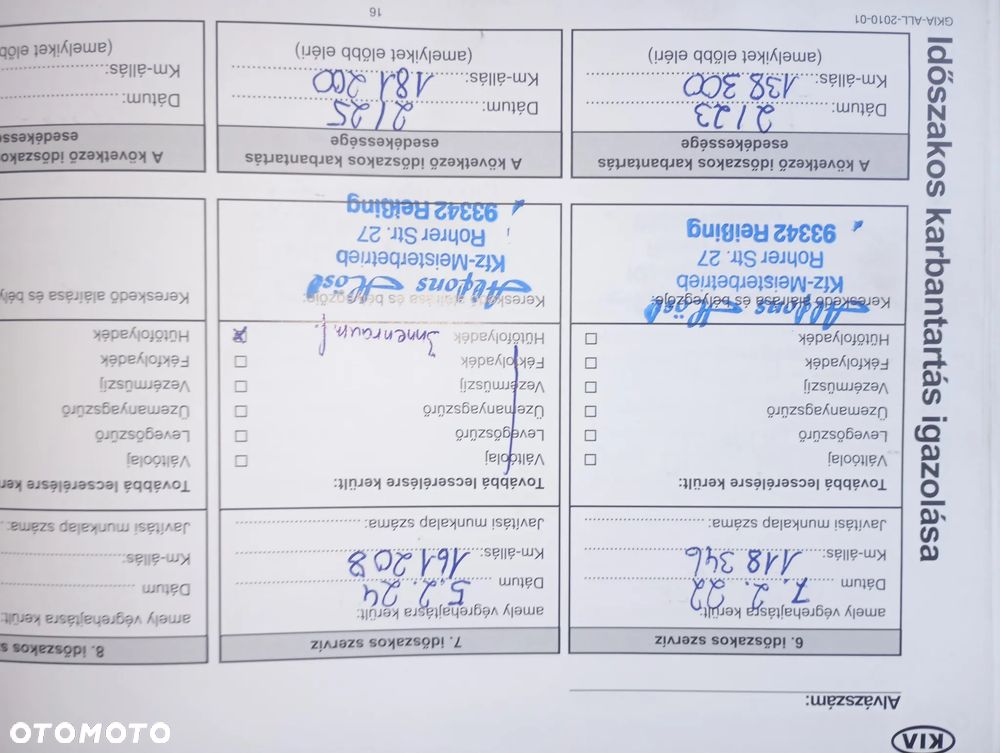 KIA
Alvázszám:
Időszakos karbantartás igazolása
6. időszakos szerviz
amely végrehajtásra került:
Dátum 7. 2. 22
Km-állás: 118 346
Javítási munkalap száma:
Továbbá lecserélésre került:
Váltóolaj
Levegőszűrő
Üzemanyagszűrő
Vezérműszíj
Fékfolyadék
Hűtőfolyadék
Kereskedő aláírása és bélyegzője:
Alfons Hösl
Kfz-Meisterbetrieb
Rohrer Str. 27
93342 Reißing
A következő időszakos karbantartás
esedékessége
Dátum: 2/23
Km-állás: 138 300
(amelyiket előbb eléri)
7. időszakos szerviz
amely végrehajtásra került:
Dátum 5. 2. 24
Km-állás: 161 208
Javítási munkalap száma:
Továbbá lecserélésre került:
Váltóolaj
Levegőszűrő
Üzemanyagszűrő
Vezérműszíj
Fékfolyadék
Hűtőfolyadék Innenraumf. X
Kereskedő aláírása és bélyegzője:
Alfons Hösl
Kfz-Meisterbetrieb
Rohrer Str. 27
93342 Reißing
A következő időszakos karbantartás
esedékessége
Dátum: 2/25
Km-állás: 181 200
(amelyiket előbb eléri)
8. időszakos s
amely végrehajtásra került:
Dátum
Km-állás:
Javítási munkalap száma:
Továbbá lecserélésre ker
Váltóolaj
Levegőszűrő
Üzemanyagszűrő
Vezérműszíj
Fékfolyadék
Hűtőfolyadék
Kereskedő aláírása és bély
A következő időszako
esedékess
Dátum:
Km-állás:
(amelyiket előbb
GKIA-ALL-2010-01
16
OTOMOTO